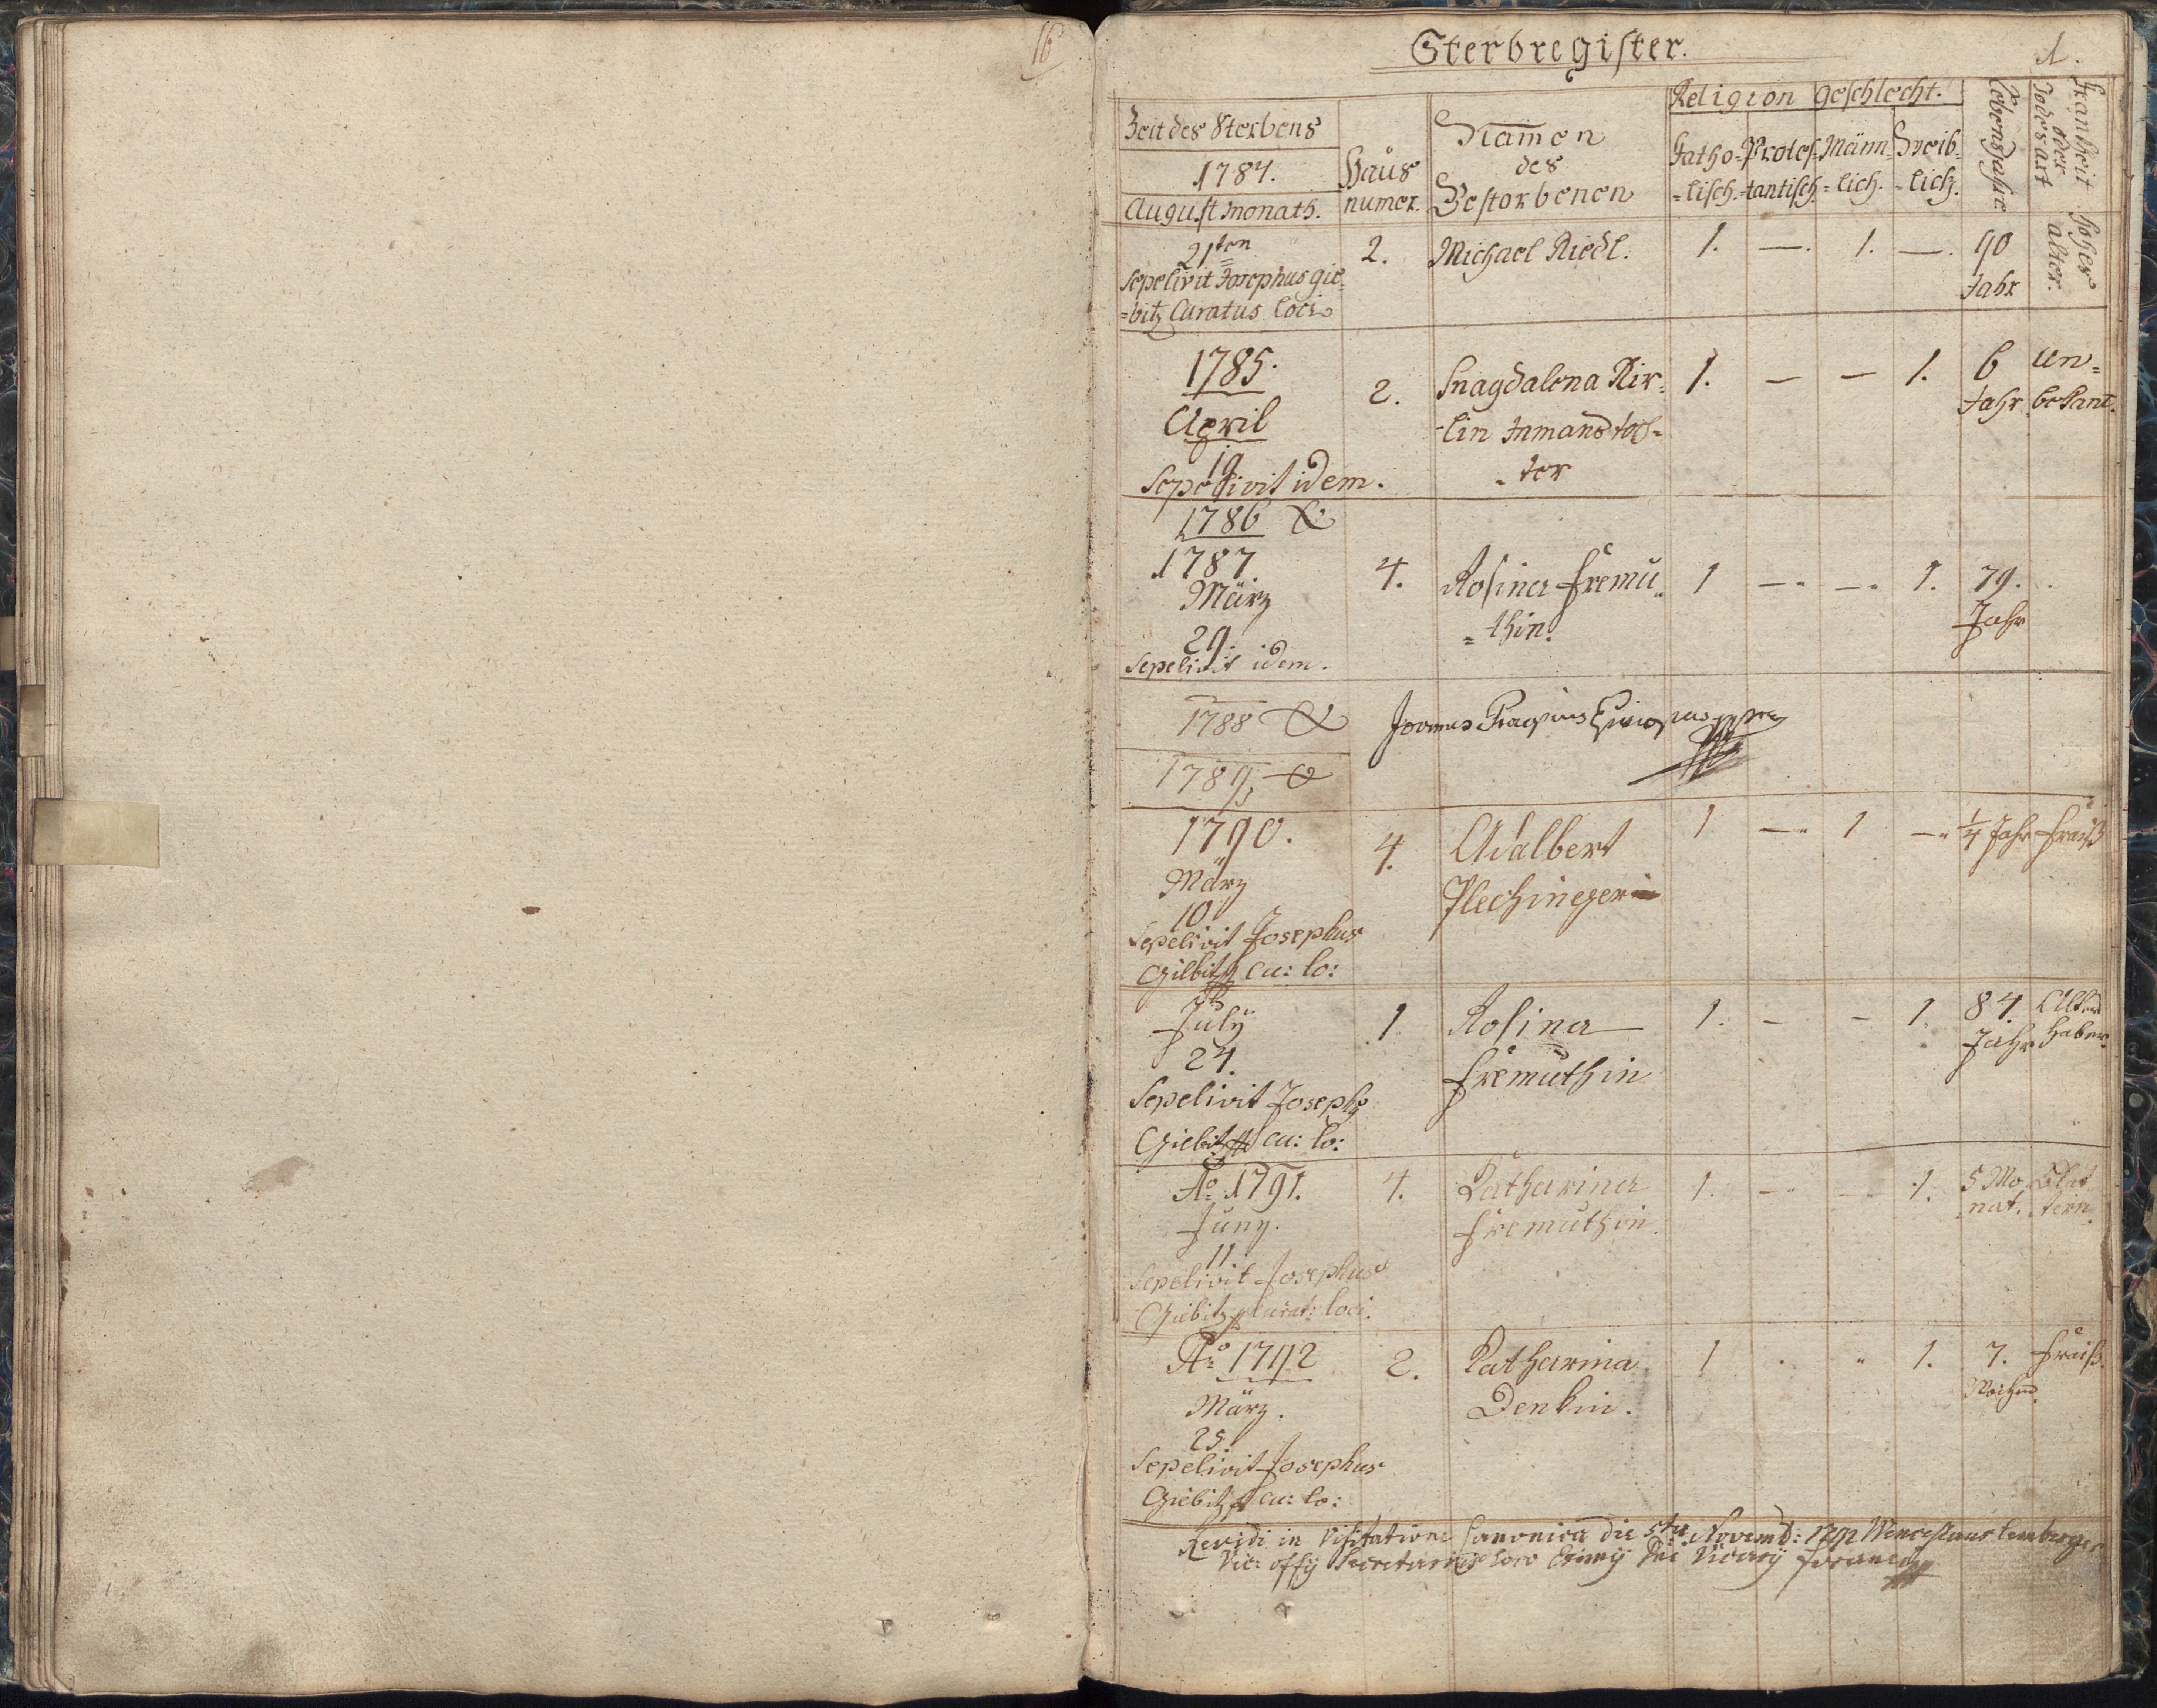 16
Sterbregister.
1.
Zeit des Sterbens
1784.
August monath.
Haus
numer.
Namen
des
Gestorbenen
Religion
Geschlecht.
Katho-
=lisch.
Protes-
=tantisch.
Männ-
=lich.
Weib-
=lich.
Lebensjahre
Krankheit
oder
Todesart
21ten
2.
Michael Riedl.
1.
—.
1.
—.
90
Jahr
hohes
alter.
Sepelivit Josephus gie=
=bitz Curatus loci
1785.
April
19
Sepelivit idem.
2.
Magdalena Kir=
=lin Inmans toch=
=ter
1.
—
—
1.
6
Jahr
un=
bekant.
1786 &
1787
März
29.
Sepelivit idem.
4.
Rosina fremu
=thin.
1
—
—
1.
79.
Jahr
1788
1789
1790.
März
10
Sepelivit Josephus
Giebitz cu: lo:
4.
Adalbert
Plechinger
1
—
1
—
1/4 Jahr
Fraiß
July
24.
Sepelivit Joseph
Giebitz cu: lo:
1
Rosina
fremuthin
1.
—
—
1.
84.
Jahr
Alters
haber.
Ao 1791.
Juny.
11
Sepelivit Josephus
Giebitz Curat: loci.
4.
Katharina
fremuthin.
1.
—
—
1.
5 Mo
nat.
Blat
tern.
Ao 1792
März.
25.
Sepelivit Josephus
Giebitz cu: lo:
2.
Katharina
Denkin.
1
1.
7.
Wochen.
Fraiß.
Revidi in Visitatione Canonica die 5ta Novemb: 1792 Wenceslaus Lemberger
Vic: offy Secretarius loco